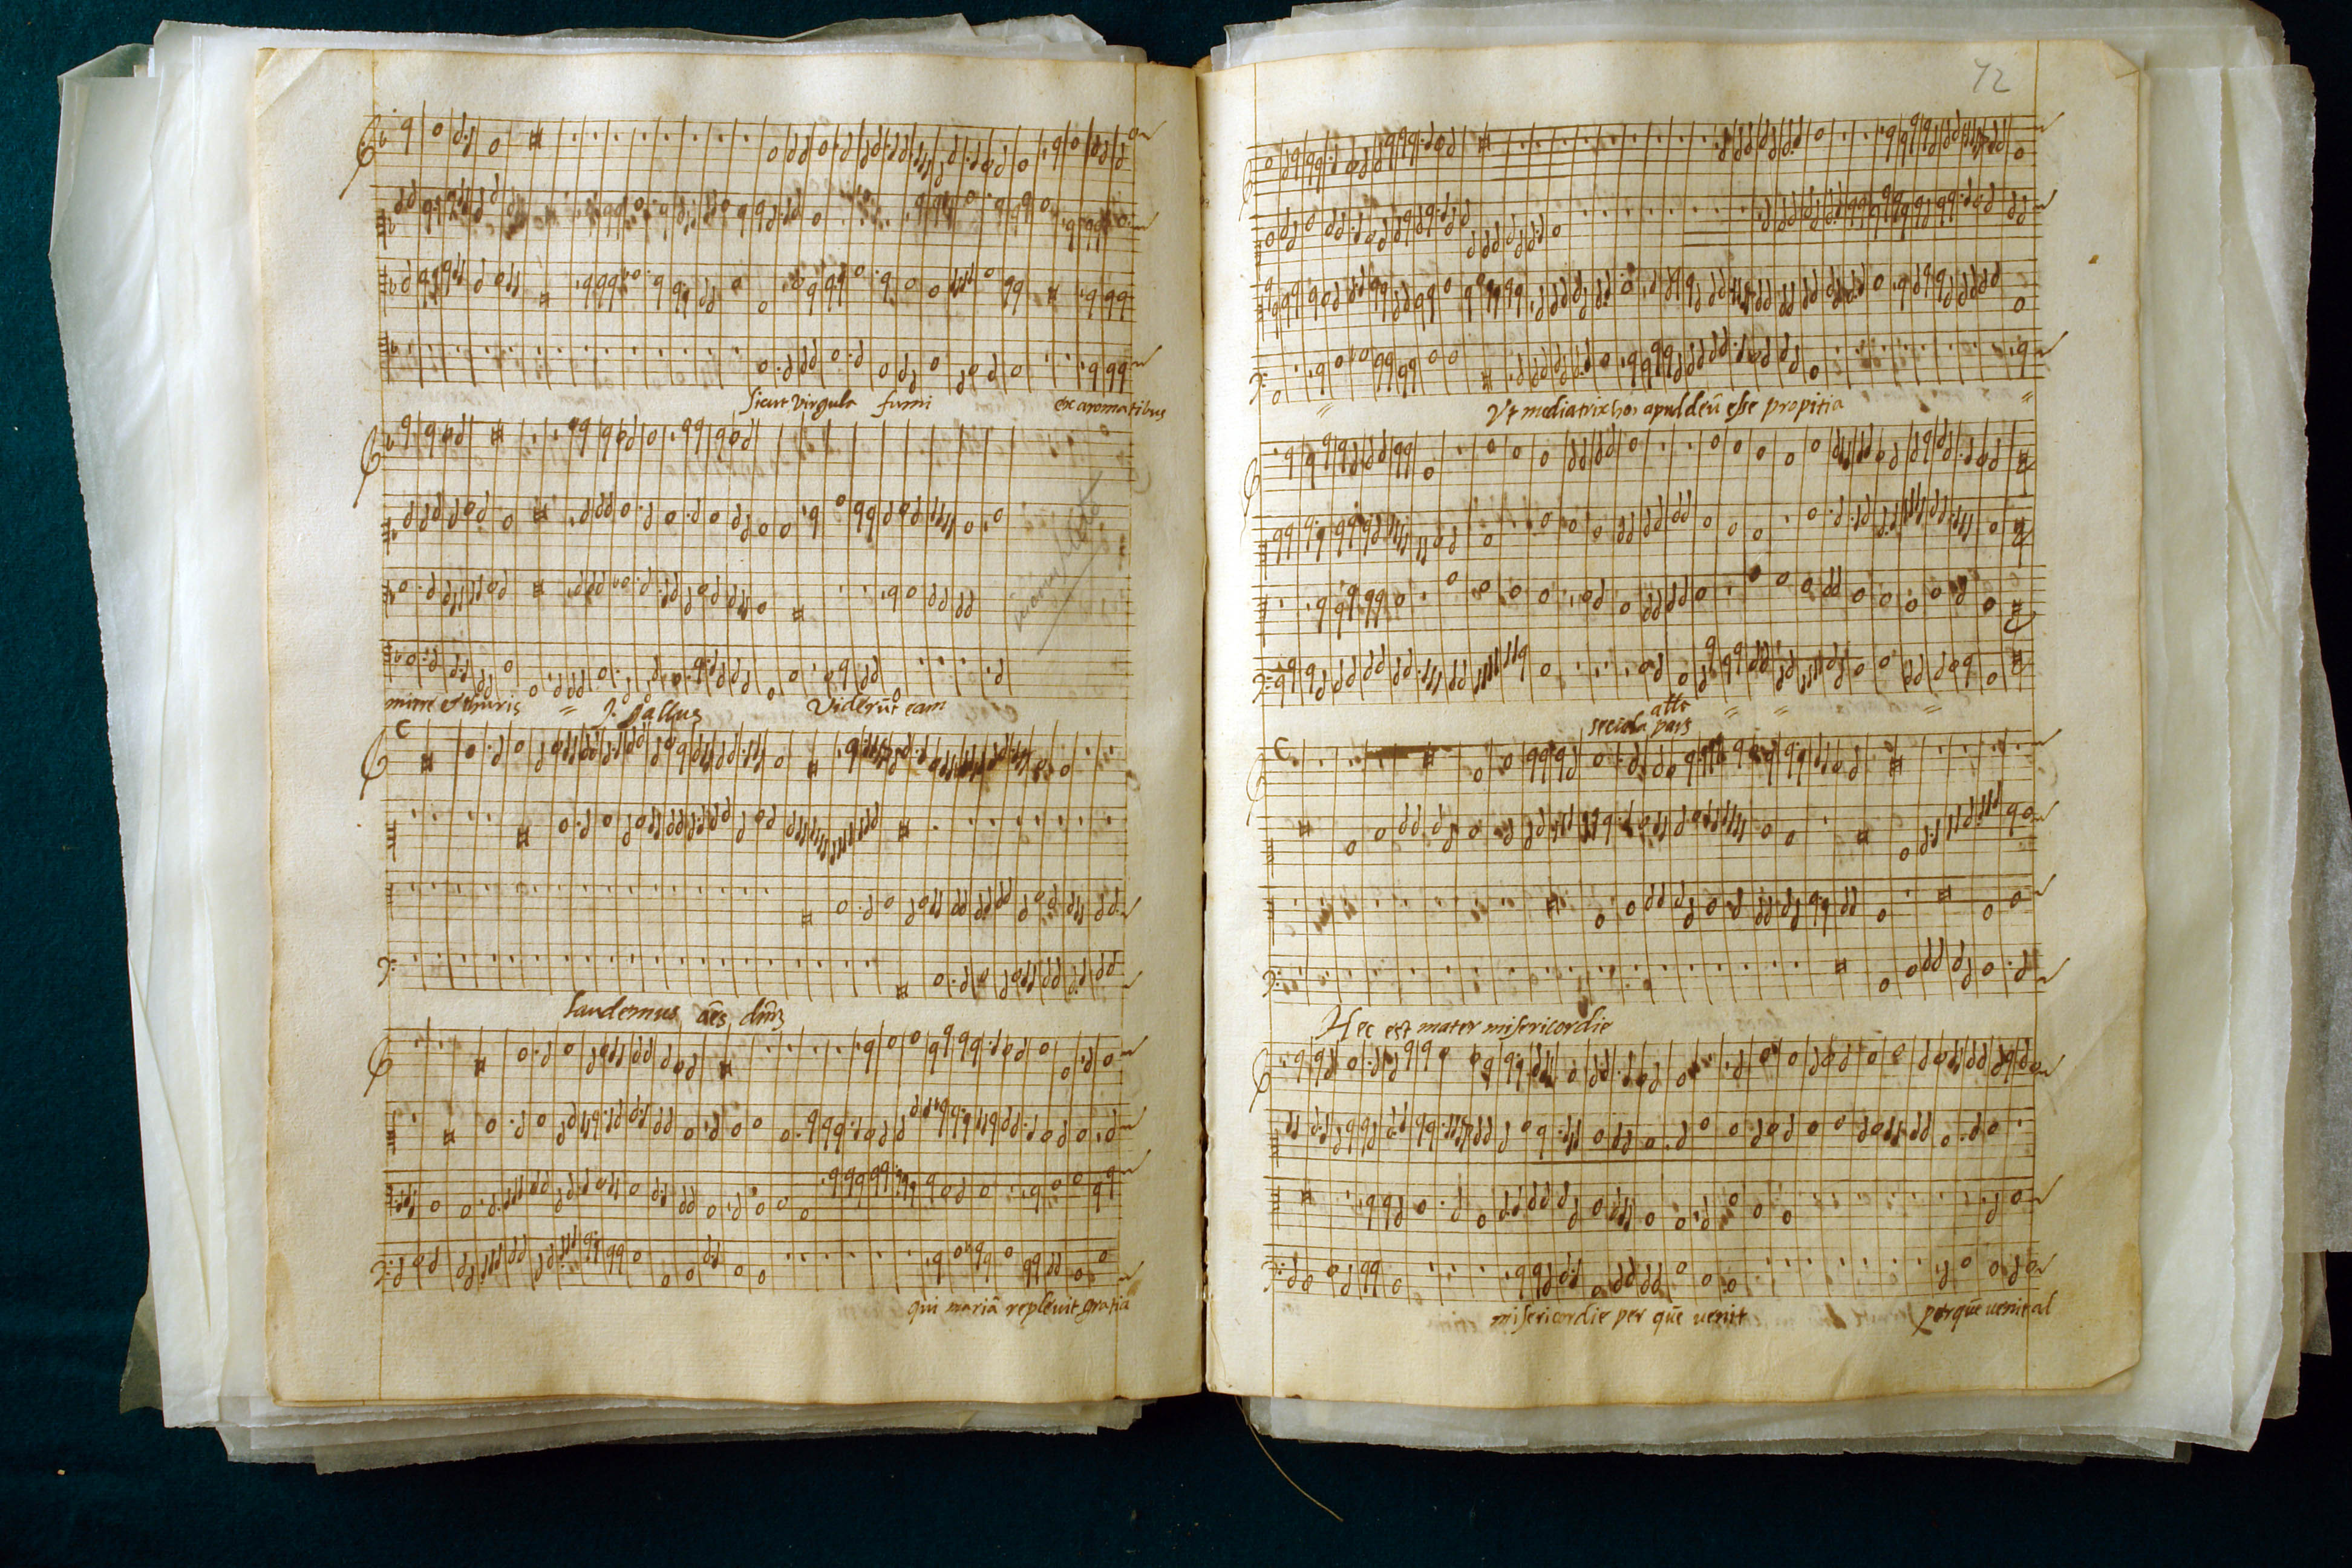 Sicut virgula fumi ex aromatibus
mirre et thuris =
J. Gallus
Viderūt eam
incompleto
Laudemus oēs dñm
qui mariā replevit gratia
72
= Ut mediatrix hos apud deū esse propitia =
alta
secūda pars = = =
Hec est mater misericordie
misericordie per quē venit per quē venit al